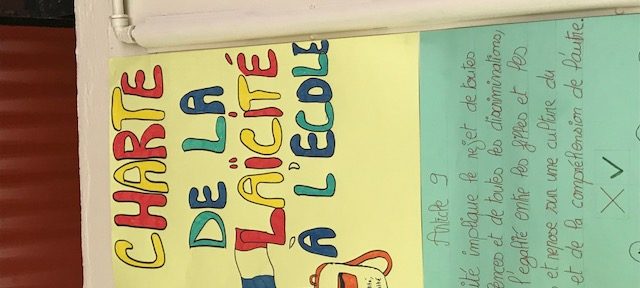 CHARTE
DE LA
LAÏCITÉ
À L'ECOLE
Article 9
ité implique le rejet de toutes
ences et de toutes les discriminations,
l'égalité entre les filles et les
et repose sur une culture du
et de la compréhension de l'autre.